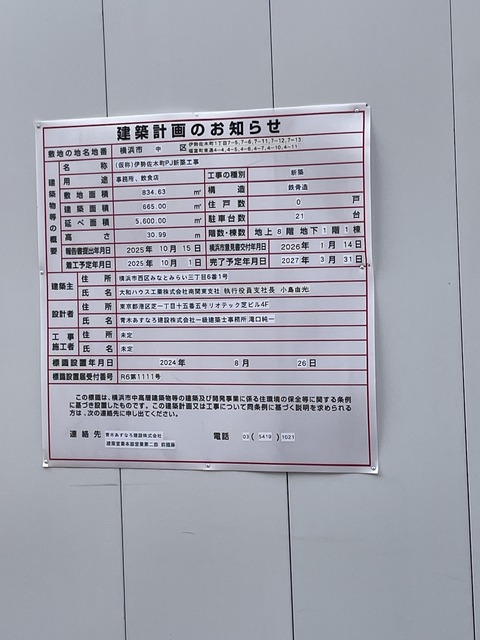 建築計画のお知らせ
敷地の地名地番 横浜市 中 区 伊勢佐木町1丁目7-5,7-6,7-11,7-12,7-13
福富町東通4-4,4-5,
建築物等の概要
名称 (仮称)伊勢佐木町PJ新築工事
用途 事務所、飲食店 工事の種別 新築
敷地面積 834.63 ㎡ 構造 鉄骨造
建築面積 665.00 ㎡ 住戸数 0 戸
延べ面積 5,600.00 ㎡ 駐車台数 21 台
高さ 30.99 m 階数・棟数 地上 8 階 地下 1 階 1 棟
報告書提出年月日 2025年 10月 15日 横浜市意見書交付年月日 2026年 1月 14日
着工予定年月日 2025年 10月 1日 完了予定年月日 2027年 3月 31日
建築主 住所 横浜市西区みなとみらい三丁目6番1号
氏名 大和ハウス工業株式会社南関東支社 執行役員支社長 小島由光
設計者 住所 東京都港区芝一丁目十五番五号リオテック芝ビル4F
氏名 青木あすなろ建設株式会社一級建築士事務所 滝口純一
工事施工者 住所 未定
氏名 未定
標識設置年月日 2024年 8月 26日
標識設置届受付番号 R6第1111号
この標識は、横浜市中高層建築物等の建築及び開発事業に係る住環境の保全等に関する条例
に基づき設置したものです。この建築計画又は工事について同条例に基づく説明を求められる
方は、次の連絡先に申し出てください。
連絡先 青木あすなろ建設株式会社 電話 03 ( 5419 ) 1021
建築営業本部営業第二部